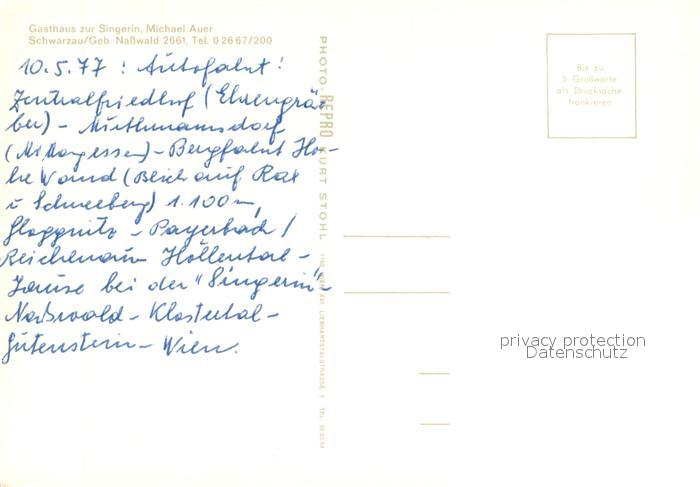 Gasthaus zur Singerin, Michael Auer
Schwarzau/Geb. Naßwald 2661, Tel. 0 26 67/200
10.5.77 : Autofahrt!
Zentralfriedhof (Ehrengrä-
ber) - Muthmannsdorf
(Mittagessen) - Bergfahrt Ho-
he Wand (Blick auf Rax
u Schneeberg) 1.100 m,
Gloggnitz - Payerbach /
Reichenau Höllental -
Jause bei der "Singerin" -
Naßwald - Klostertal -
Gutenstein - Wien.
PHOTO-REPRO KURT STOHL
Bis zu
5 Grußworte
als Drucksache
frankieren
privacy protection
Datenschutz